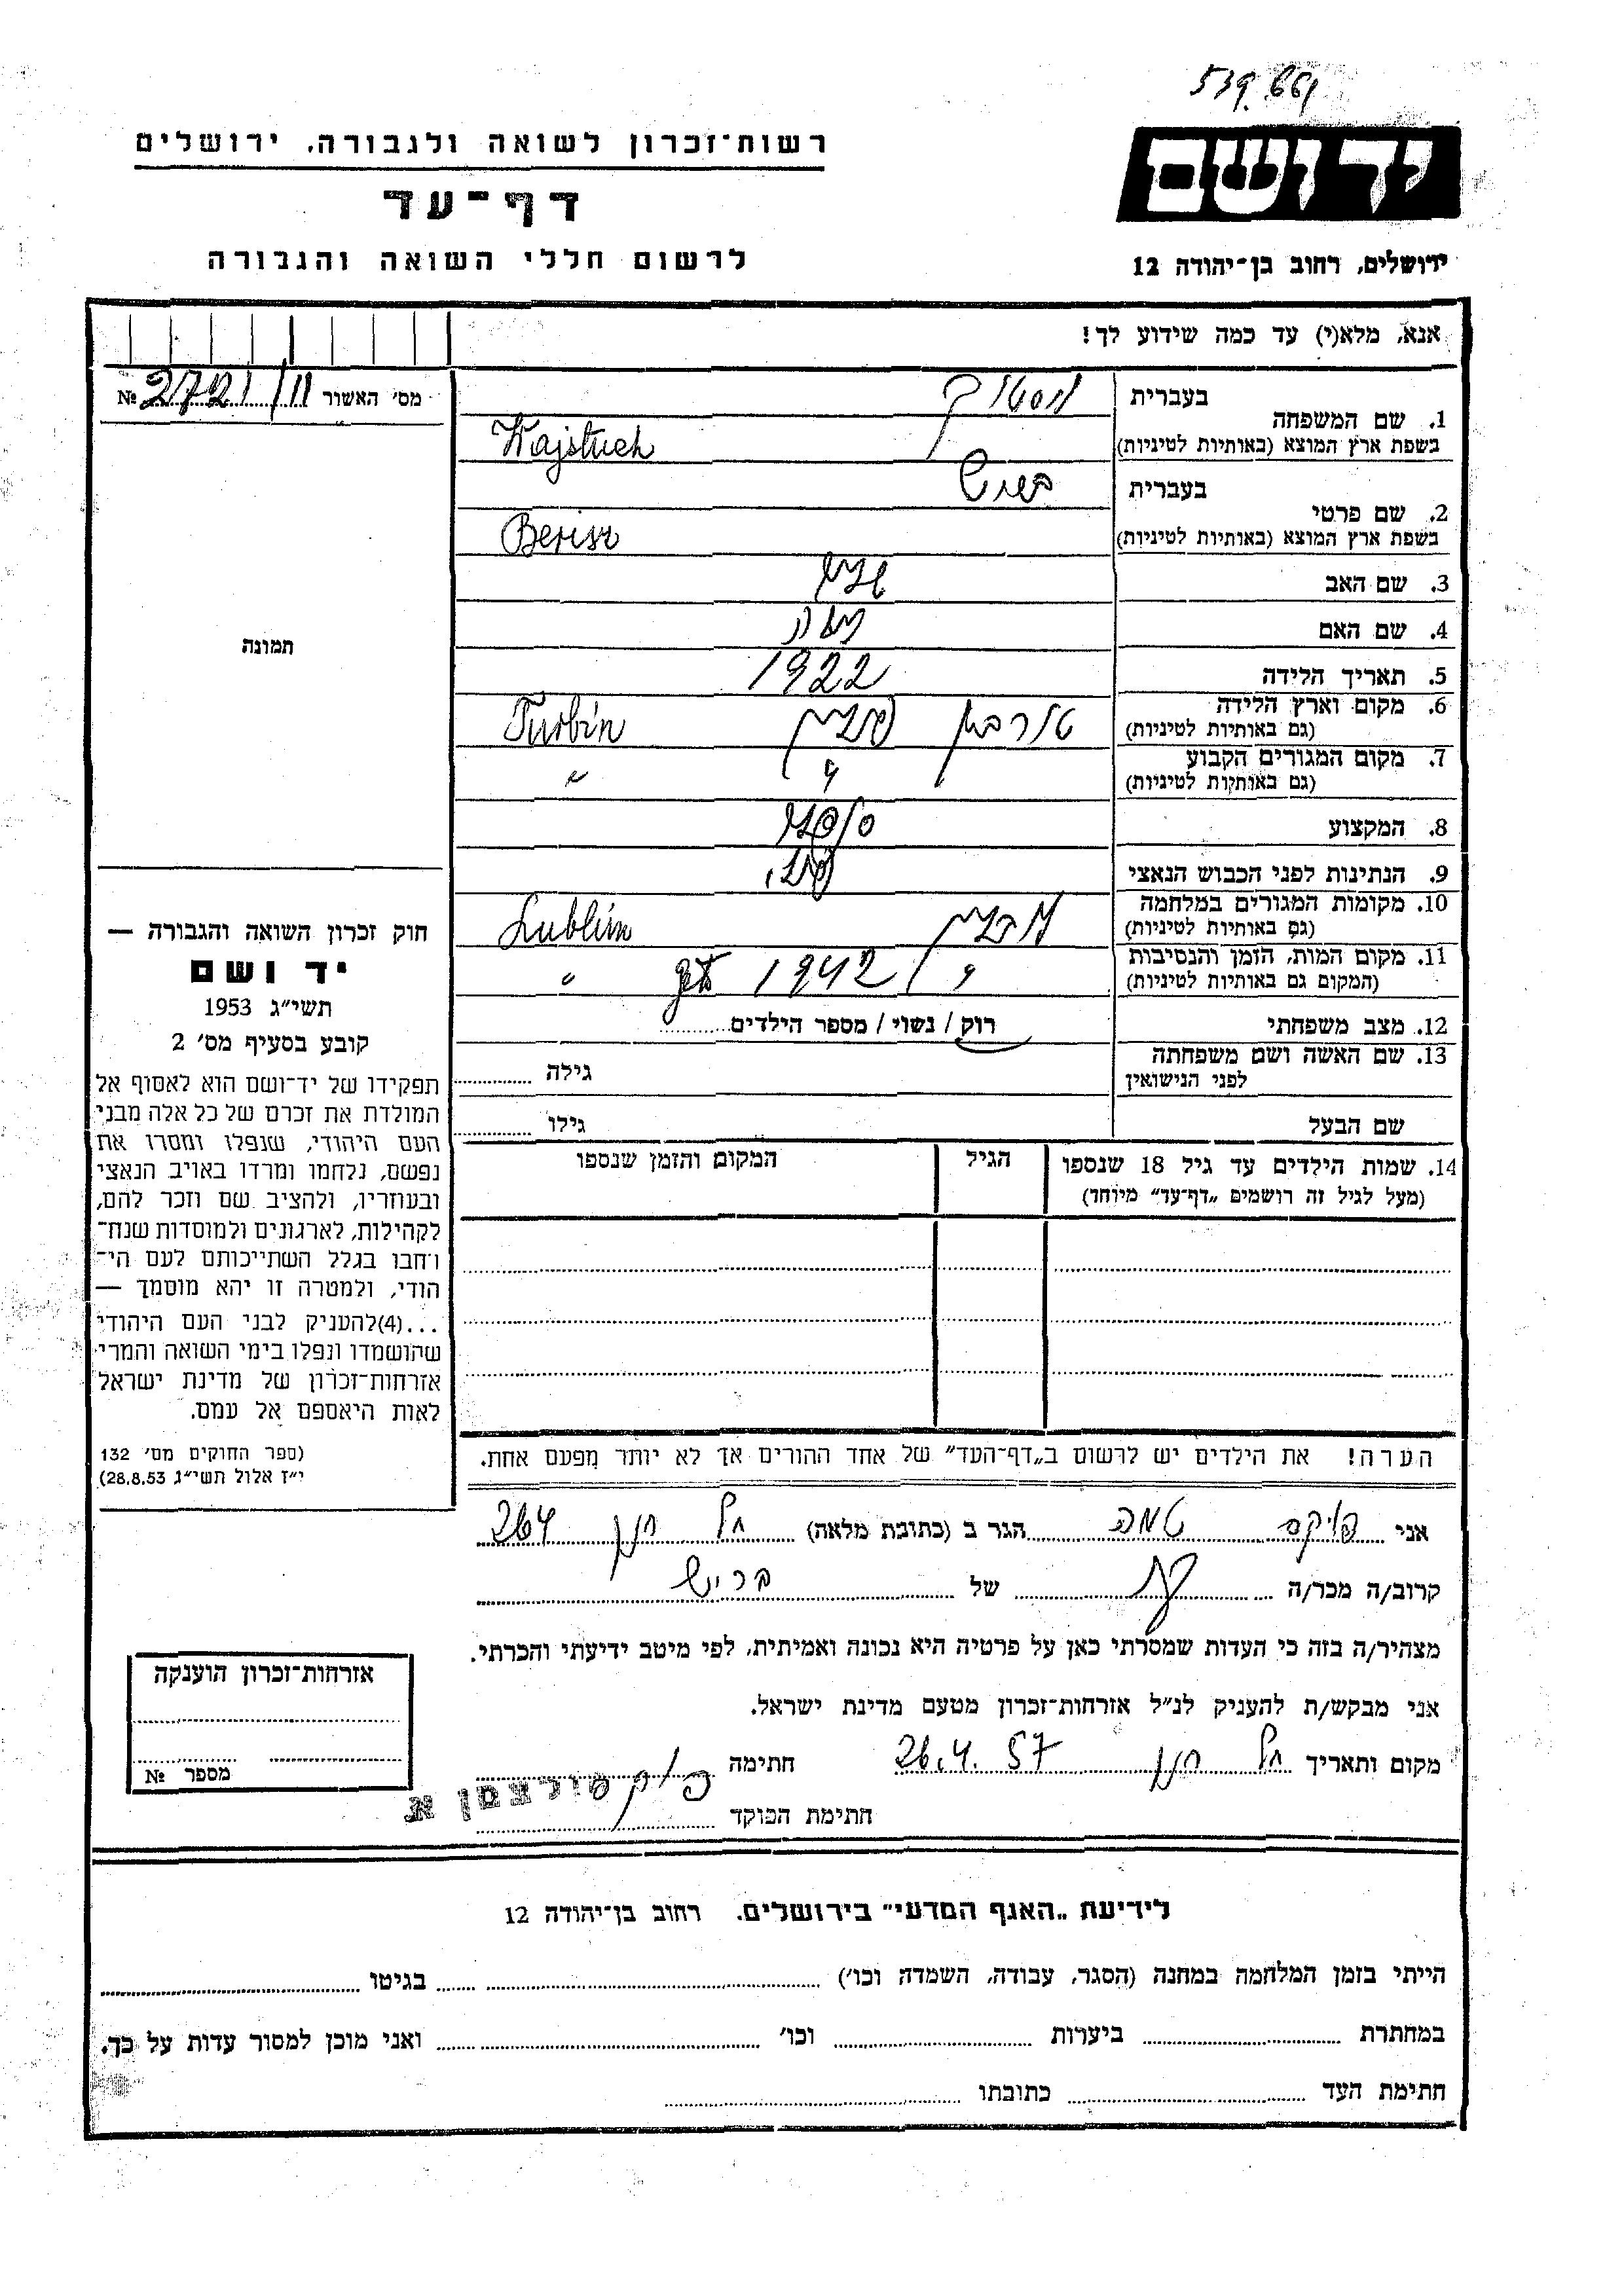 539.661
רשות־זכרון לשואה ולגבורה, ירושלים
יד ושם
דף־עד
לרשום חללי השואה והגבורה
ירושלים, רחוב בן־יהודה 12
אנא, מלא(י) עד כמה שידוע לך!
מס׳ האשור № 2721/11
בעברית
1. שם המשפחה
בשפת ארץ המוצא (באותיות לטיניות) Wajstuch
בעברית
2. שם פרטי
בשפת ארץ המוצא (באותיות לטיניות) Berisz
3. שם האב
4. שם האם
תמונה
5. תאריך הלידה 1922
6. מקום וארץ הלידה טורבין פולין Turbin
(גם באותיות לטיניות)
7. מקום המגורים הקבוע " "
(גם באותיות לטיניות)
8. המקצוע
9. הנתינות לפני הכבוש הנאצי פול.
10. מקומות המגורים במלחמה לובלין Lublin
(גם באותיות לטיניות)
11. מקום המות, הזמן והנסיבות " 1942 "
(המקום גם באותיות לטיניות)
12. מצב משפחתי רוק / נשוי / מספר הילדים
13. שם האשה ושם משפחתה
לפני הנישואין גילה
שם הבעל גילו
14. שמות הילדים עד גיל 18 שנספו הגיל המקום והזמן שנספו
(מעל לגיל זה רושמים „דף־עד״ מיוחד)
חוק זכרון השואה והגבורה —
יד ושם
תשי״ג 1953
קובע בסעיף מס׳ 2
תפקידו של יד־ושם הוא לאסוף אל
המולדת את זכרם של כל אלה מבני
העם היהודי, שנפלו ומסרו את
נפשם, נלחמו ומרדו באויב הנאצי
ובעוזריו, ולהציב שם וזכר להם,
לקהילות, לארגונים ולמוסדות שנח־
רחבו בגלל השתייכותם לעם הי־
הודי, ולמטרה זו יהא מוסמך —
...(4)להעניק לבני העם היהודי
שהושמדו ונפלו בימי השואה והמרי
אזרחות־זכרון של מדינת ישראל
לאות היאספם אל עמם.
(ספר החוקים מס׳ 132
י״ז אלול תשי״ג 28.8.53)
הערה! את הילדים יש לרשום ב„דף־העד״ של אחד ההורים אך לא יותר מפעם אחת.
אני הגר ב (כתובת מלאה) תל חנן 264
קרוב/ה מכר/ה של בריש
מצהיר/ה בזה כי העדות שמסרתי כאן על פרטיה היא נכונה ואמיתית, לפי מיטב ידיעתי והכרתי.
אני מבקש/ת להעניק לנ״ל אזרחות־זכרון מטעם מדינת ישראל.
מקום ותאריך תל חנן 26.4.57 חתימה
חתימת הפוקד
אזרחות־זכרון הוענקה
מספר №
לידיעת „האגף המדעי״ בירושלים. רחוב בן־יהודה 12
הייתי בזמן המלחמה במחנה (הסגר, עבודה, השמדה וכו׳) בגיטו
במחתרת ביערות וכו׳ ואני מוכן למסור עדות על כך.
חתימת העד כתובתו